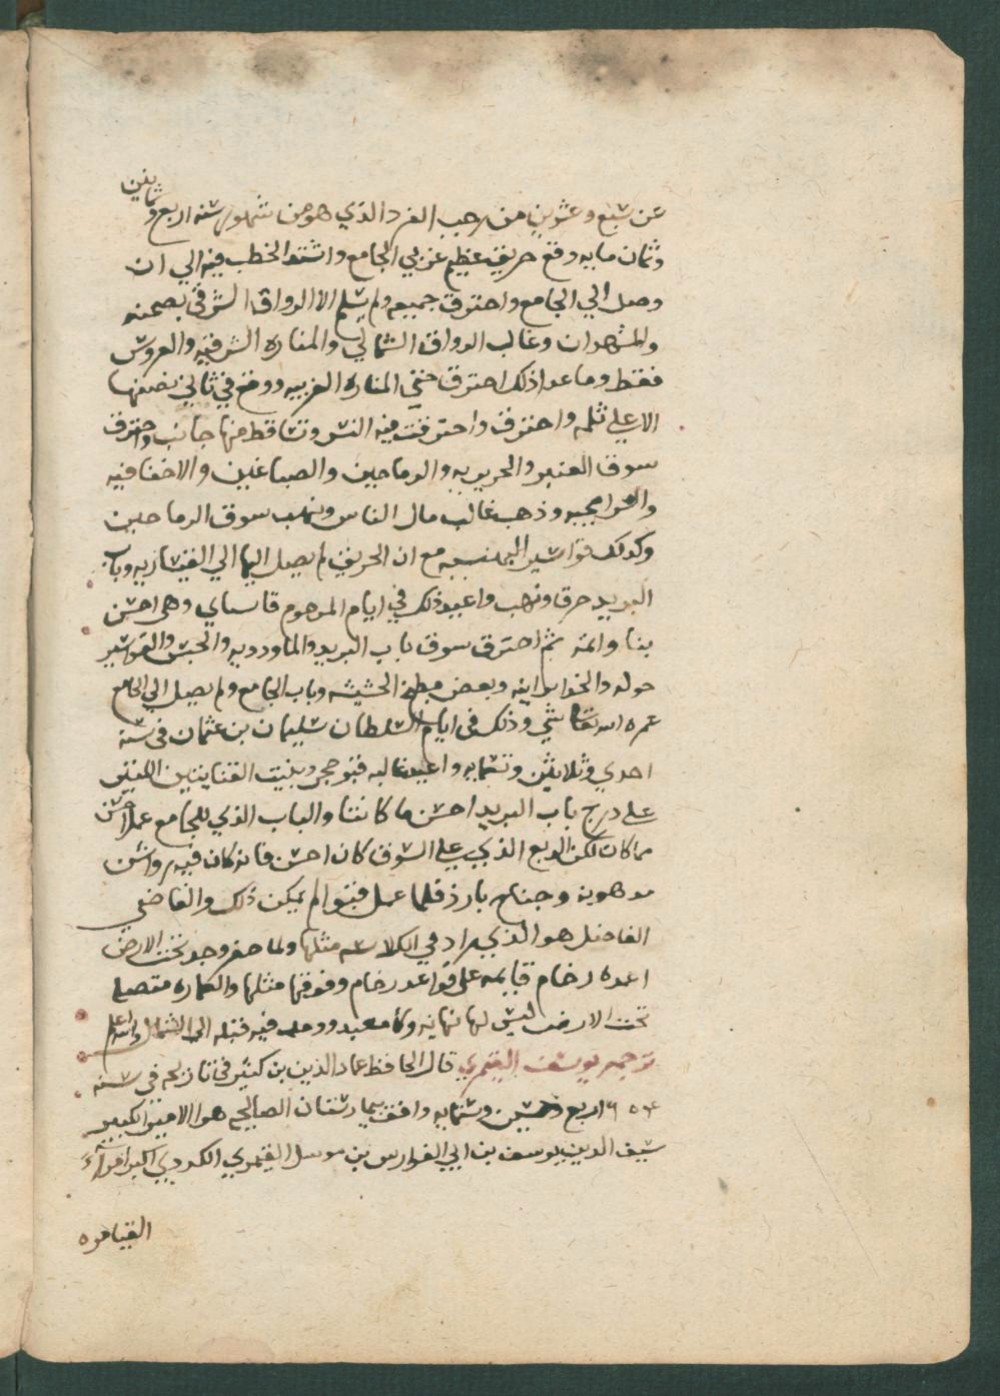 عن سبع وعشرين من رجب الفرد الذي هو من شهور سنه اربع وثمانين
وثمان مايه وقع حريق عظيم غربي الجامع واشتد الخطب فيه الي ان
وصل الي الجامع واحترق جميعه ولم يسلم الا الرواق الشرقي بصحنه
والمشهدان وغالب الرواق الشمالي والمناره الشرقيه والعروس
فقط وما عدا ذلك احترق حتي المناره الغربيه ووقع في ثاني نصفها
الاعلي ثلمه واحترق واحترقت فيه النسر وتساقط منها جانب واحترق
سوق العنبر والحريريه والرماحين والصباغين والاخفافيه
وذهب غالب مال الناس ونهب سوق الرماحين
وكذلك مع ان الحريق لم يصل اليها الي وباب
البريد حرقا ونهب واعيد ذلك في ايام المرحوم قانسباي وهي احسن
بنا واتمه ثم احترق سوق باب البريد والماورديه والحبس والقواسير
حوله وبعض مطبخ الحشيشه وباب الجامع ولم يصل الي الجامع
عمره الله تعالي شي وذلك في ايام السلطان سليمان بن عثمان في سنه
احدي وثلاثين وتسمايه واعيد غالبه قبو حجر وبنيت القناتين اللتين
علي درج باب البريد احسن ما كانتا والباب الذي للجامع عمل احسن
مما كان لكن الربع الذي علي السوق كان احسن فانه كان فيه رواشن
مدهونه وجناح بارز فلما عمل قبوا لم يمكن ذلك والقاضي
الفاضل هو الذي زاد في الكلاسه مثلها ولما حفر وجد تحت الارض
اعمده رخام قايمه علي قواعد رخام وفوقها مثلها والعماره متصله
تحت الارض ليس لها نهايه وكا معبد ووجد فيه قبله الي الشمال والله اعلم
ترجمه يوسف القيمري قال الحافظ عماد الدين بن كثير في تاريخه في سنه
٦٥٤ اربع وخمسين وستمايه واقف بيمارستان الصالحيه هو الامير الكبير
سيف الدين يوسف بن ابي الفوارس بن موسك القيمري الكردي اكبر امراء
القيامره